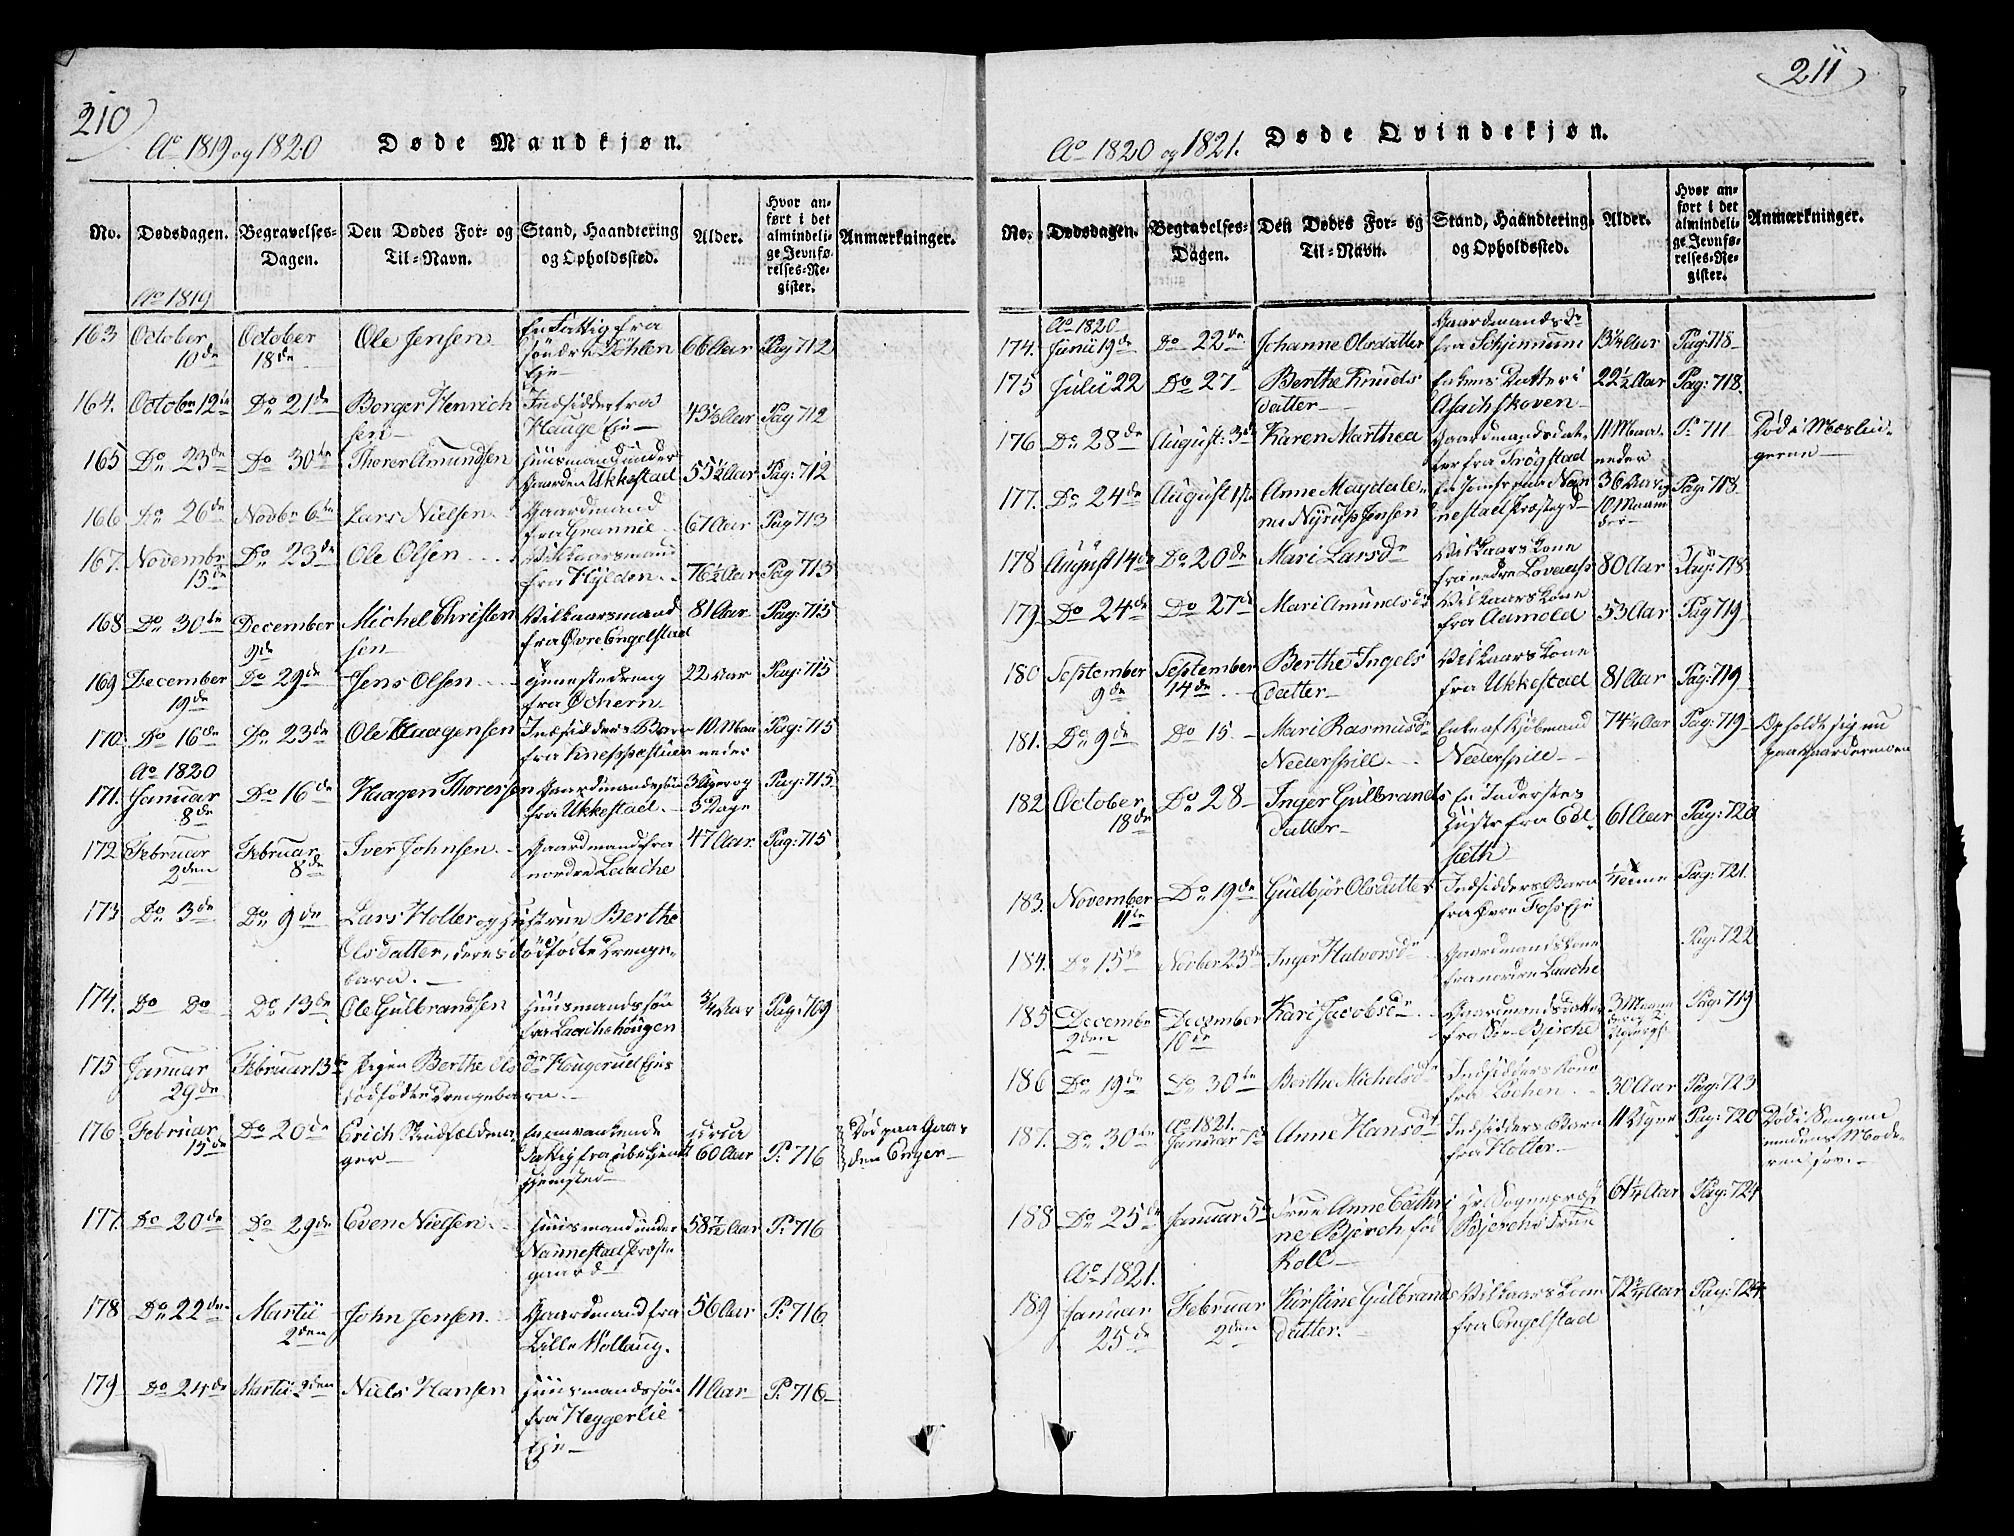 210
Ao 1819 og 1820 Døde Mandkjøn.
No. Dødsdagen. Begravelses-Dagen. Den Dødes For- og Til-Navn. Stand, Haandtering og Opholdssted. Alder. Hvor anført i det almindelige Jevnførelses-Register. Anmærkninger.
Ao 1819
163 October 10de October 18de Ole Jensen En Fattig fra søndre Løhlen Eje 66 Aar Pag 712
164. Octobr 12te Do 21de Borger Henrichsen Indsidder fra Hauge Eje 43 1/3 Aar Pag 712
165 Do 23de Do 30te Thorer Amundsen Huusmand under Gaarden Ukkestad 55 1/2 Aar Pag: 712
166 Do 26de Novbr 6te Lars Nielsen Gaardmand fra Grannie 67 Aar Pag 713
167. Novembr 15de Do 23de Ole Olsen Vilkaarsmand fra Hylden 76 1/2 Aar Pag 713
168 Do 30te December 9de Michel Christensen Vilkaarsmand fra Øvre Engelstad 81 Aar Pag: 715
169 December 19de Do 29de Jens Olsen fra Ochern 22 Aar Pag: 715
170. Do 16de Do 23de Ole Haagensen Indsidders Barn fra 10 Maaneder Pag: 715
Ao 1820
171. Januar 8de Do 16de Haagen Thoresen Gaardmandssøn fra Ukkestad 3 Uger og 3 Dage Pag: 715
172 Februar 2den Februar 8de Iver Johnsen Gaardmand fra nordre Laache 47 Aar Pag: 715
173 Do 3de Do 9de Lars Holter og Hustrue Berthe Olsdatter, deres dødfødte Drengebarn.
174. Do Do Do 13de Ole Gulbrandsen Huusmandssøn fra Laachehougen 3/4 Aar Pag: 709
175 Januar 29de Februar 13de Pigen Berthe Olsdr Hougerud Ejes dødfødte Drengebarn.
176 Februar 15de Do 20de Erich Omvankende Fattig 60 Aar P: 716 Død paa Gaarden Enger
177. Do 20de Do 29de Even Nielsen Huusmand under Nannestad Præstegaard 58 7/12 Aar P: 716
178 Do 22den Martii 2den John Jensen Gaardmand fra Lille Wollaug. 56 Aar P: 716
179 Do 24de Martii 2den Niels Hansen Huusmandssøn fra Heggerlie Eje 11 Aar P: 716
211
Ao 1820 og 1821. Døde Qvindekjøn.
No. Dødsdagen. Begravelses-Dagen. Den Dødes For- og Til-Navn. Stand, Haandtering og Opholdssted. Alder. Hvor anført i det almindelige Jevnførelses-Register. Anmærkninger.
Ao 1820
174. Junii 19de Do 22de Johanne Olsdatter Gaardmands Dr fra Schjennum 13 1/4 Aar Pag: 718
175 Julii 22 Do 27 Berthe Knudsdatter Enkens Datter i Asachskoven 22 1/2 Aar Pag: 718
176 Do 28de August: 3de Karen Marthea Gaardmandsdatter fra Trøgstad 11 Maaneder P: 711 Død i Meslingerne
177. Do 24de August 1ste Anne Magdalene Nyrups Jensen En Jomfrue Nannestad Præstegd 36 Aar og 10 Maaneder Pag: 718
178 August 14de Do 20de Mari Larsdr Vilkaarskone fra nedre Løvaass 80 Aar Pag: 718
179. Do 24de Do 27de Mari Amundsdr Vilkaarskone fra Aamold 53 Aar Pag 719
180 September 9de September 14de Berthe Ingelsdatter Vilkaarskone fra Ukkestad 81 Aar Pag: 719
181. Do 9de Do 15 Mari Rasmusdr Nederspill Enke af Kjøbmand Nederspill 74 1/4 Aar Pag: 719 Opholdt sig nu paa Gardermoen
182 October 18de Do 28 Inger Gulbrandsdatter En Inderstes Hustr fra Edelsæth 61 Aar Pag: 720
183. November 11te Do 19de Guelbjør Olsdatter Indsidders Barn fra Øvre Foss Eje 1/4 Time Pag: 721.
184. Do 15de Novber 23de Inger Halvorsdr Gaardmandskone fra nordre Laache Pag: 722
185 Decembr 2den December 10de Kari Jacobsdr Gaardmandsdatter fra Bjerche 3 Maaneder Pag: 719
186 Do 19de Do 30te Berthe Michelsdr Indsidders Kone fra Lochen 30 Aar Pag: 723
187. Do 30te Ao 1821. Januar 7de Anne Hansdr Indsidders Barn fra Holter 11 Uger Pag: 720 Død i Sengen medens Moderen sov.
188 Do 25de Januar 5te Frue Anne Cathrine Bjerch, fød Koll Hr. Sognepræst Bjerchs Frue 61 1/4 Aar Pag: 724
Ao 1821.
189 Januar 25de Februar 2den Kirstine Gulbrandsdatter. Vilkaarskone fra Engelstad 72 3/4 Aar Pag: 724